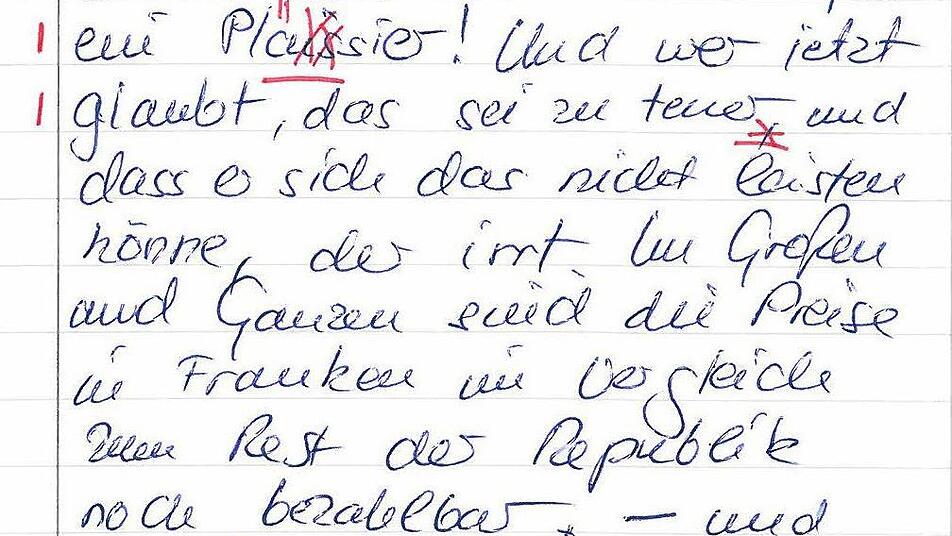 ein Pläissier! Und wer jetzt
glaubt, das sei zu teuer, und
dass er sich das nicht leisten
könne, der irrt Im Großen
und Ganzen sind die Preise
in Franken im Vergleich
zum Rest der Republik
noch bezahlbar, – und